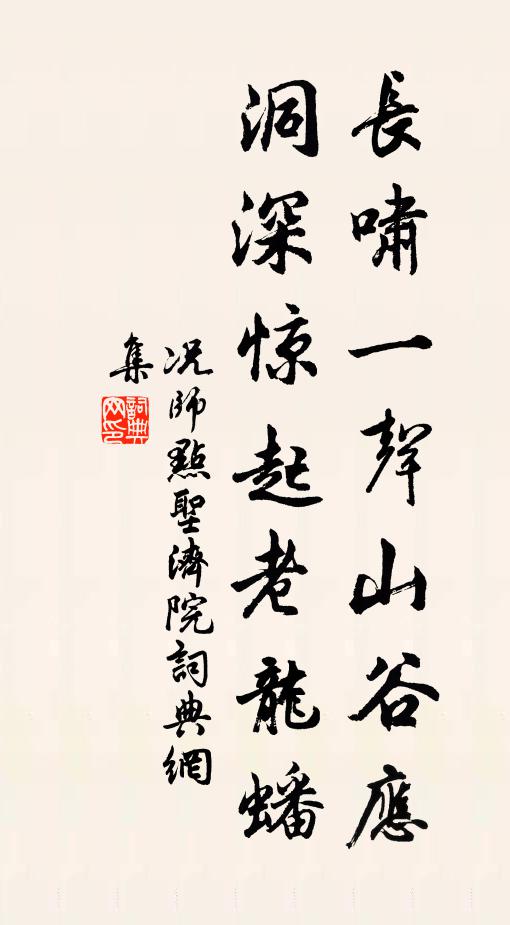 長嘯一聲山谷應
洞深惊起老龍蟠
况師點聖濟院詞典網
集
詞典网印